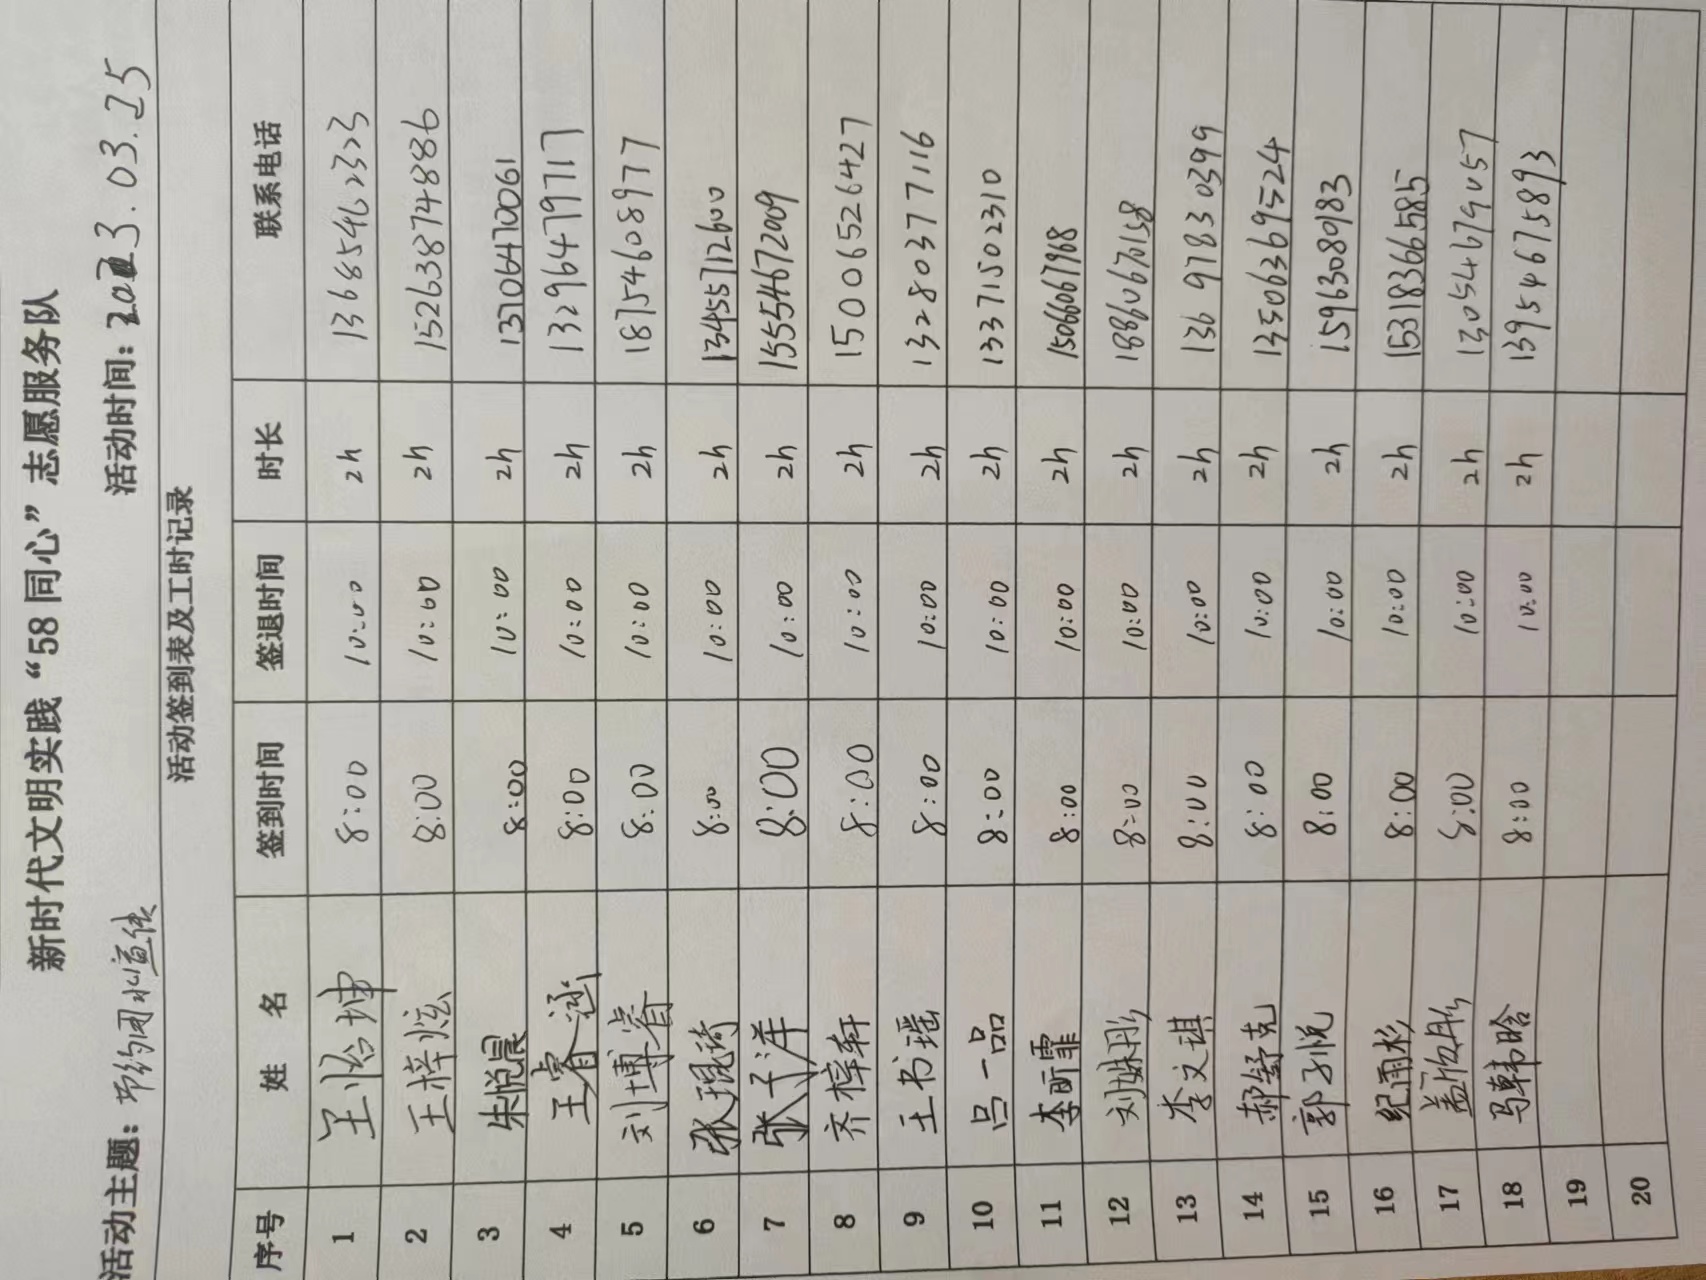 新时代文明实践“58同心”志愿服务队
活动主题：节约用水宣传 活动时间：2023.03.25
活动签到表及工时记录
序号 姓 名 签到时间 签退时间 时长 联系电话
1 王怡坤 8:00 10:00 2h 13685462323
2 王梓炫 8:00 10:00 2h 15263874886
3 朱悦晨 8:00 10:00 2h 13706470061
4 王睿涵 8:00 10:00 2h 13296479717
5 刘博睿 8:00 10:00 2h 18754608977
6 张琨琦 8:00 10:00 2h 13455712600
7 张子洋 8:00 10:00 2h 15554672009
8 齐梓轩 8:00 10:00 2h 15006526427
9 王书瑶 8:00 10:00 2h 13280377116
10 吕一品 8:00 10:00 2h 13371502310
11 李昕霏 8:00 10:00 2h 15066067968
12 刘姝彤 8:00 10:00 2h 18860670158
13 李文琪 8:00 10:00 2h 13697830399
14 郝舒克 8:00 10:00 2h 13506369524
15 郭子悦 8:00 10:00 2h 15963080983
16 纪雨杉 8:00 10:00 2h 15318366585
17 盖欣彤 8:00 10:00 2h 13054679057
18 马韩晗 8:00 10:00 2h 13954675893
19
20